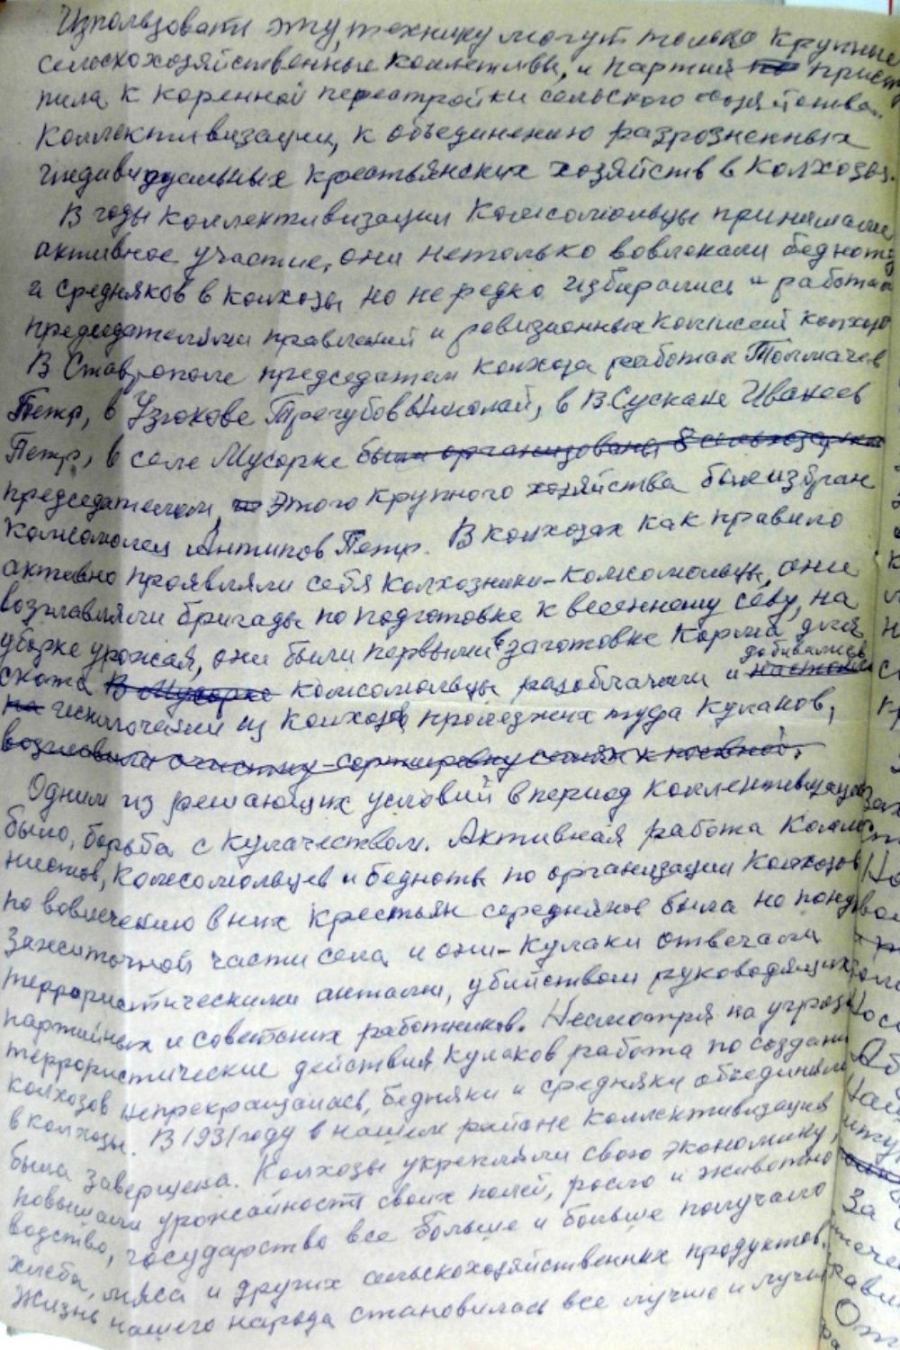 Изпользовать эту технику могут только крупные
сельскохозяйственные коллективы, и партия присту
пила к коренной перестройки сельского хозяйства.
Коллективизации, к объединению разрозненных
индивидуальных крестьянских хозяйств в колхозы.
В годы коллективизации комсомольцы принимали
активное участие, они нетолько вовлекали бедноту
и средняков в колхозы но не редко избирались и работали
председателями правлений и ревизионных комиссий колхозов
В Ставрополе председателем колхоза работал Толмачев
Петр, в Узюкове Трегубов Николай, в В.Сускане Иванаев
Петр, в селе Мусорке был организованы 8 сельхозартели
председателем этого крупного хозяйства был избран
комсомолец Антипов Петр. В колхозах как правило
активно проявляли себя колхозники-комсомольцы, они
возглавляли бригады по подготовке к весеннему севу, на
уборке урожая, они были первыми в заготовке корма для
добивались
скота В Мусорке комсомольцы разоблачали и настояли
на исключений из колхозов пролезших туда кулаков,
возглавили очистку-сортировку семян к посевной.
Одним из решающих условий в период коллективизации
было, борьба с кулачеством. Активная работа комму
нистов, комсомольцев и бедноты по организации колхозов
по вовлечению в них крестьян середняков была не понд
зажиточной части села и они-кулаки отвечали
террористическими актами, убийством руководящих
партийных и советских работников. Несмотря на угрозы
террористические действия кулаков работа по создани
колхозов непрекращалась, бедняки и средняки объединяли
в колхозы. В 1931 году в нашем районе коллективизация
была завершена. Колхозы укрепляли свою экономику,
повышали урожайность своих полей, росло и животно
водство, государство все больше и больше получало
хлеба, мяса и других сельскохозяйственных продуктов.
Жизнь нашего народа становилась все лучше и лучше